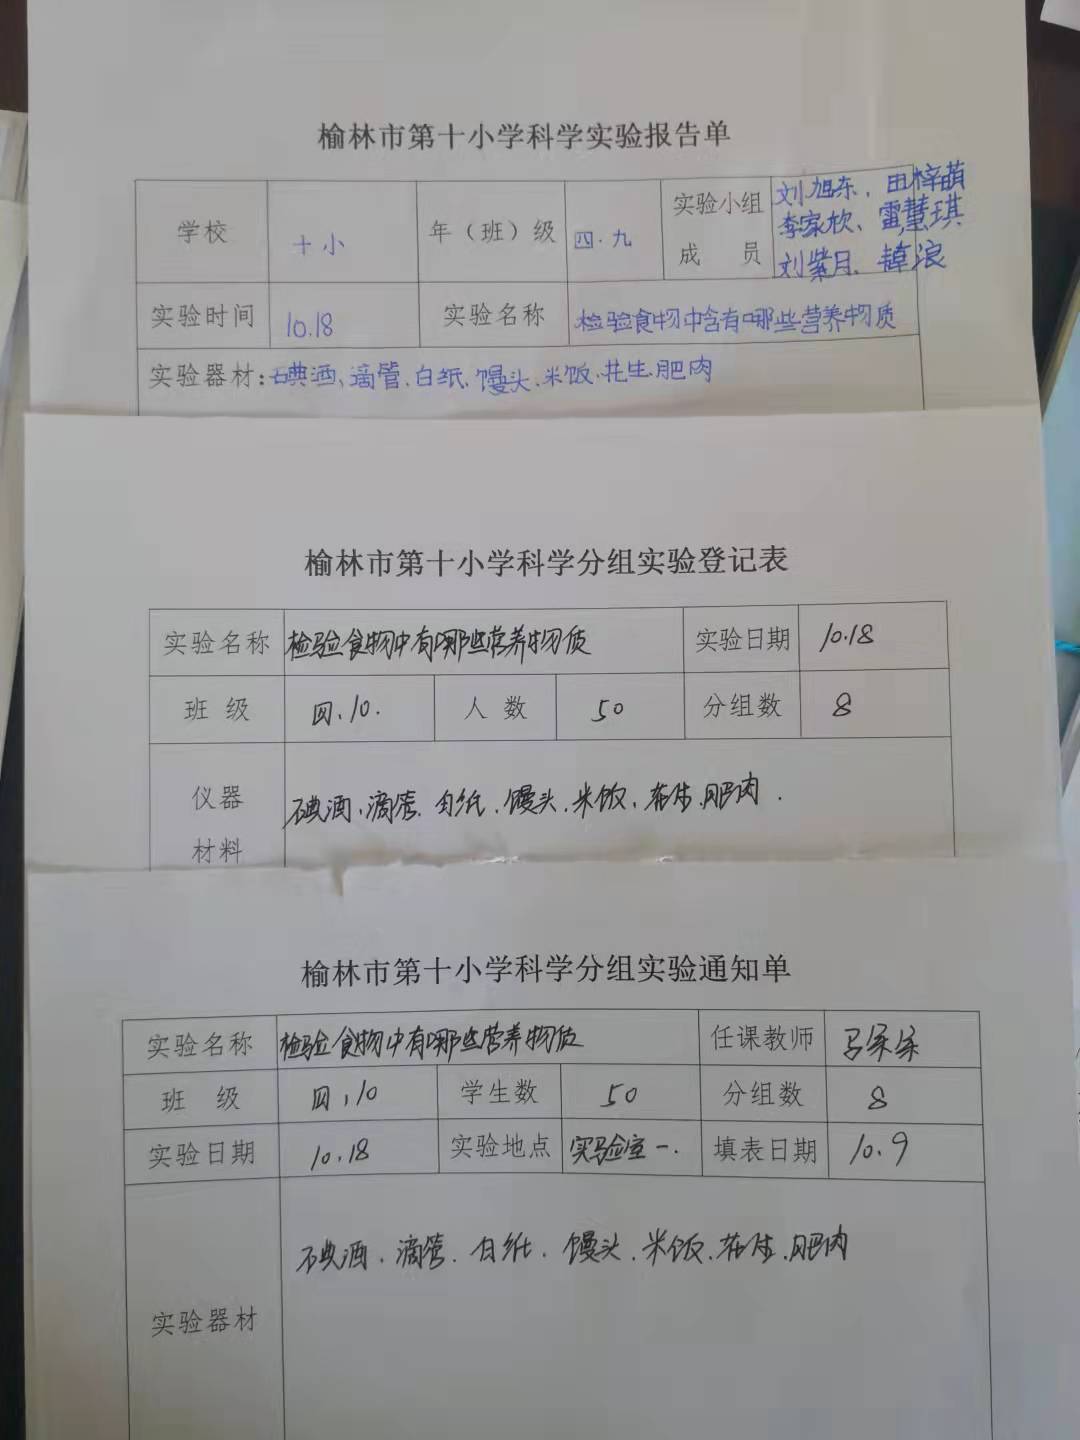 榆林市第十小学科学实验报告单
学校 十小 年（班）级 四.九 实验小组成员 刘旭东、田梓萌
李家欣、雷慧琪
刘紫月、韩浪
实验时间 10.18 实验名称 检验食物中含有哪些营养物质
实验器材：碘酒、滴管、白纸、馒头、米饭、花生、肥肉
榆林市第十小学科学分组实验登记表
实验名称 检验食物中有哪些营养物质 实验日期 10.18
班级 四.10. 人数 50 分组数 8
仪器
材料 碘酒、滴管、白纸、馒头、米饭、花生、肥肉.
榆林市第十小学科学分组实验通知单
实验名称 检验食物中有哪些营养物质 任课教师 马
班级 四,10 学生数 50 分组数 8
实验日期 10.18 实验地点 实验室一. 填表日期 10.9
实验器材 碘酒、滴管、白纸、馒头、米饭、花生、肥肉